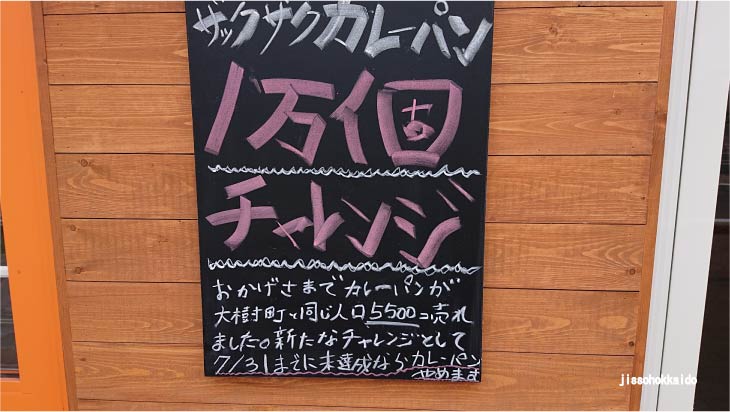 ザックザクカレーパン
1万個
チャレンジ
おかげさまでカレーパンが
大樹町と同じ人口5500コ売れ
ました。新たなチャレンジとして
7/31までに未達成ならカレーパン
やめます
jissohokkaido